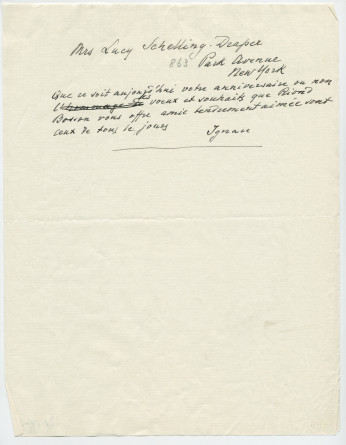 Mrs Lucy Schelling-Draper
863 Park Avenue
New York
Que ce soit aujourd'hui votre anniversaire ou non
l'hommage les voeux et souhaits que Riond
Bosson vous offre amie tendrement aimée sont
ceux de tous le jours
Ignace